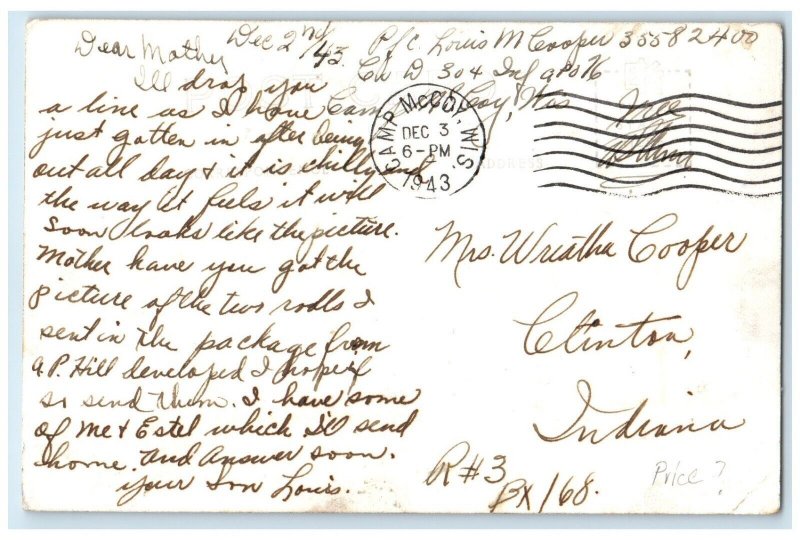 Dec 2nd/43.
Pfc. Louis M Cooper 35582400
Co D 304 Inf apo 76
Camp McCoy, Wis
Free
CAMP McCOY, WIS.
DEC 3
6-PM
1943
Dear Mother
I'll drop you
a line as I have
just gotten in after being
out all day & it is chilly and
the way it feels it will
soon looks like the picture.
Mother have you got the
picture of the two rolls I
sent in the package from
A.P. Hill developed I hope if
so send them. I have some
of me & Estel which I'll send
home. And answer soon.
your son Louis.
ADDRESS
Mrs. Wreatha Cooper
Clinton,
Indiana
R#3
BX 168.
Price?